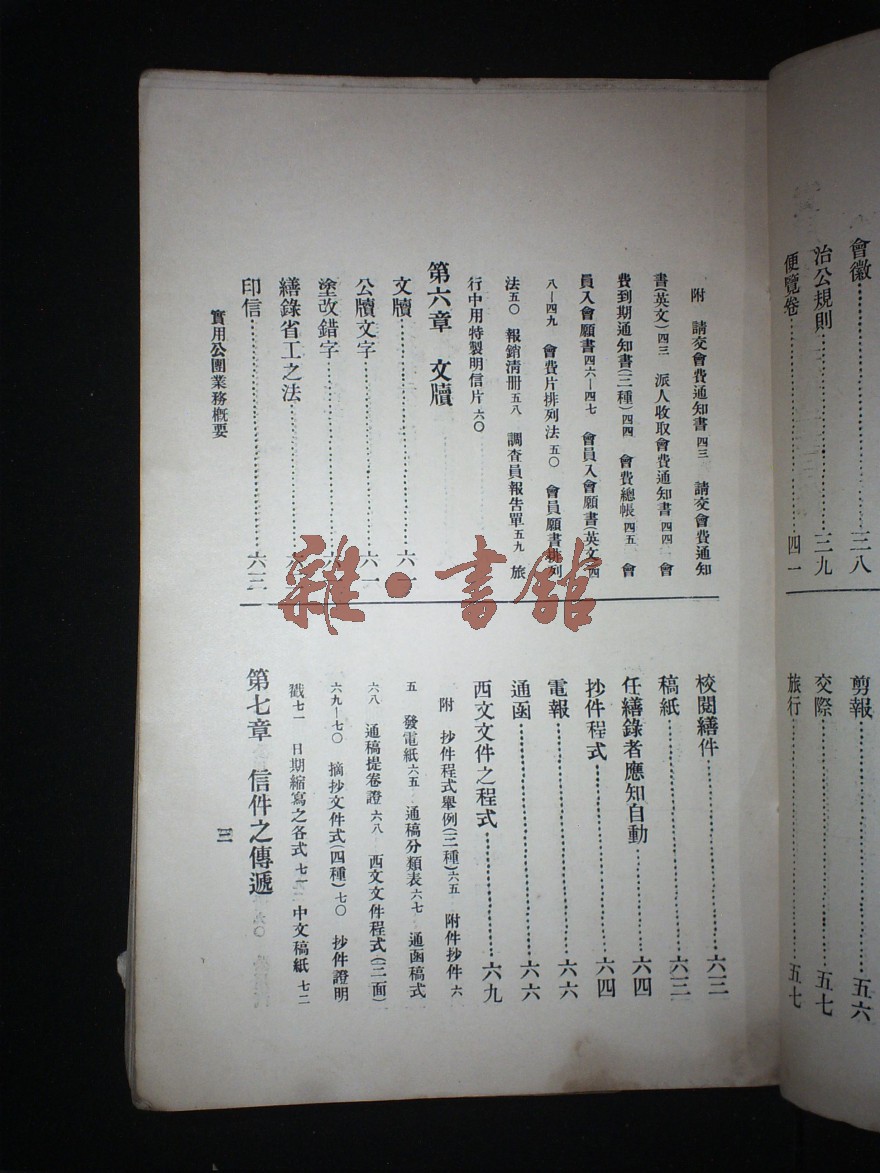 會徽……三八
治公規則……三九
便覽卷……四一
剪報……五六
交際……五七
旅行……五七
附　請交會費通知書四三　請交會費通知
書(英文)四三　派人收取會費通知書四四　會
費到期通知書(三種)四四　會費總帳四五　會
員入會願書四六—四七　會員入會願書(英文)四
八—四九　會費片排列法五〇　會員願書排列
法五〇　報銷清册五八　調查員報告單五九　旅
行中用特製明信片六〇
第六章　文牘
文牘……六一
公牘文字……六一
塗改錯字……六
繕錄省工之法……六
印信……六三
實用公團業務概要
校閱繕件……六三
稿紙……六三
任繕錄者應知自動……六四
抄件程式……六四
電報……六六
通函……六六
西文文件之程式……六九
附　抄件程式舉例(三種)六五　附件抄件六
五　發電紙六五　通稿分類表六七　通函稿式
六八　通稿提卷證六八　西文文件程式(二面)
六九—七〇　摘抄文件式(四種)七〇　抄件證明
戳七一　日期縮寫之各式七一　中文稿紙七二
第七章　信件之傳遞
三
雜·書館